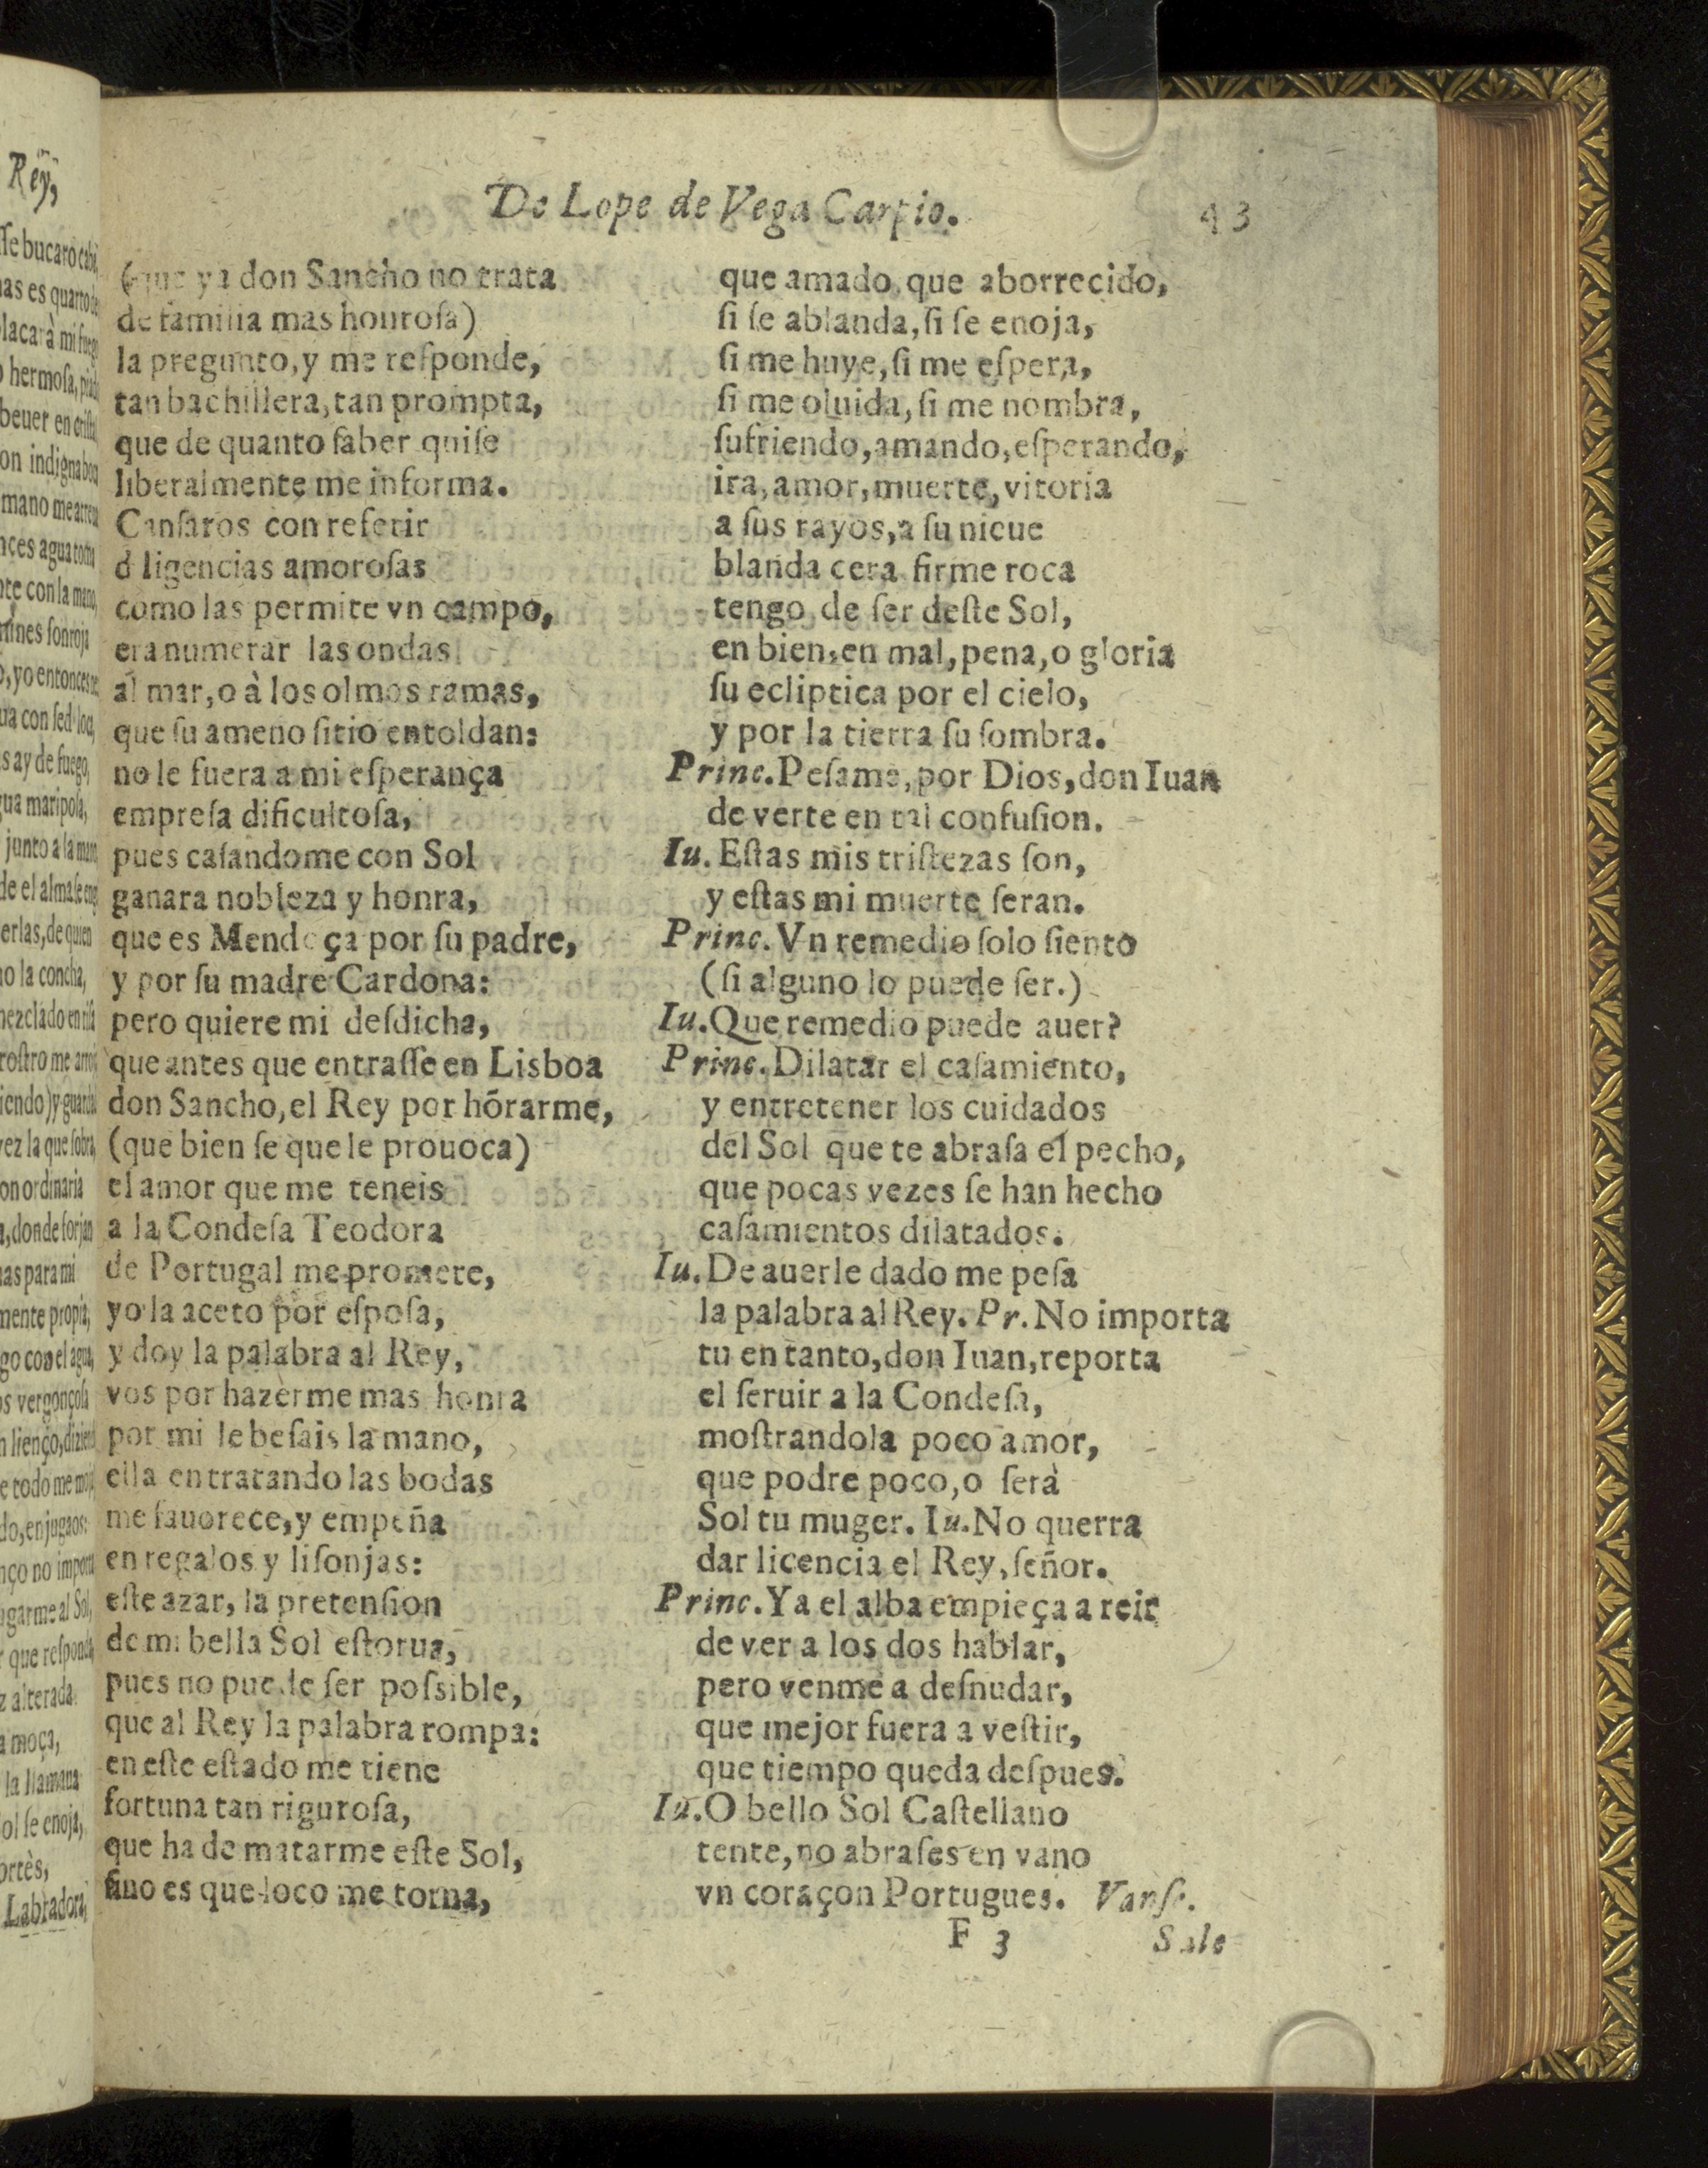 De Lope de Vega Carpio. 43
(que ya don Sancho no trata
de familia mas honrosa)
la pregunto, y me responde,
tan bachillera, tan prompta,
que de quanto saber quise
liberalmente me informa.
Cansaros con referir
diligencias amorosas
como las permite vn campo,
era numerar las ondas
al mar, o à los olmos ramas,
que su ameno sitio entoldan:
no le fuera a mi esperança
empresa dificultosa,
pues casandome con Sol
ganara nobleza y honra,
que es Mendoça por su padre,
y por su madre Cardona:
pero quiere mi desdicha,
que antes que entrasse en Lisboa
don Sancho, el Rey por hõrarme,
(que bien se que le prouoca)
el amor que me teneis
a la Condesa Teodora
de Portugal me promete,
yo la aceto por esposa,
y doy la palabra al Rey,
vos por hazerme mas honra
por mi le besais la mano,
ella en tratando las bodas
me fauorece, y empeña
en regalos y lisonjas:
este azar, la pretension
de mi bella Sol estorua,
pues no puede ser possible,
que al Rey la palabra rompa:
en este estado me tiene
fortuna tan rigurosa,
que ha de matarme este Sol,
sino es que loco me torna,
que amado, que aborrecido,
si se ablanda, si se enoja,
si me huye, si me espera,
si me oluida, si me nombra,
sufriendo, amando, esperando,
ira, amor, muerte, vitoria
a sus rayos, a su nieue
blanda cera firme roca
tengo de ser deste Sol,
en bien, en mal, pena, o gloria
su ecliptica por el cielo,
y por la tierra su sombra.
Princ. Pesame, por Dios, don Iuan
de verte en tal confusion.
Iu. Estas mis tristezas son,
y estas mi muerte seran.
Princ. Vn remedio solo siento
(si alguno lo puede ser.)
Iu. Que remedio puede auer?
Princ. Dilatar el casamiento,
y entretener los cuidados
del Sol que te abrasa el pecho,
que pocas vezes se han hecho
casamientos dilatados.
Iu. De auerle dado me pesa
la palabra al Rey. Pr. No importa
tu en tanto, don Iuan, reporta
el seruir a la Condesa,
mostrandola poco amor,
que podre poco, o serà
Sol tu muger. Iu. No querra
dar licencia el Rey, señor.
Princ. Ya el alba empieça a reir
de ver a los dos hablar,
pero venme a desnudar,
que mejor fuera a vestir,
que tiempo queda despues.
Iu. O bello Sol Castellano
tente, no abrases en vano
vn coraçon Portugues. Vanse.
F 3 Sale